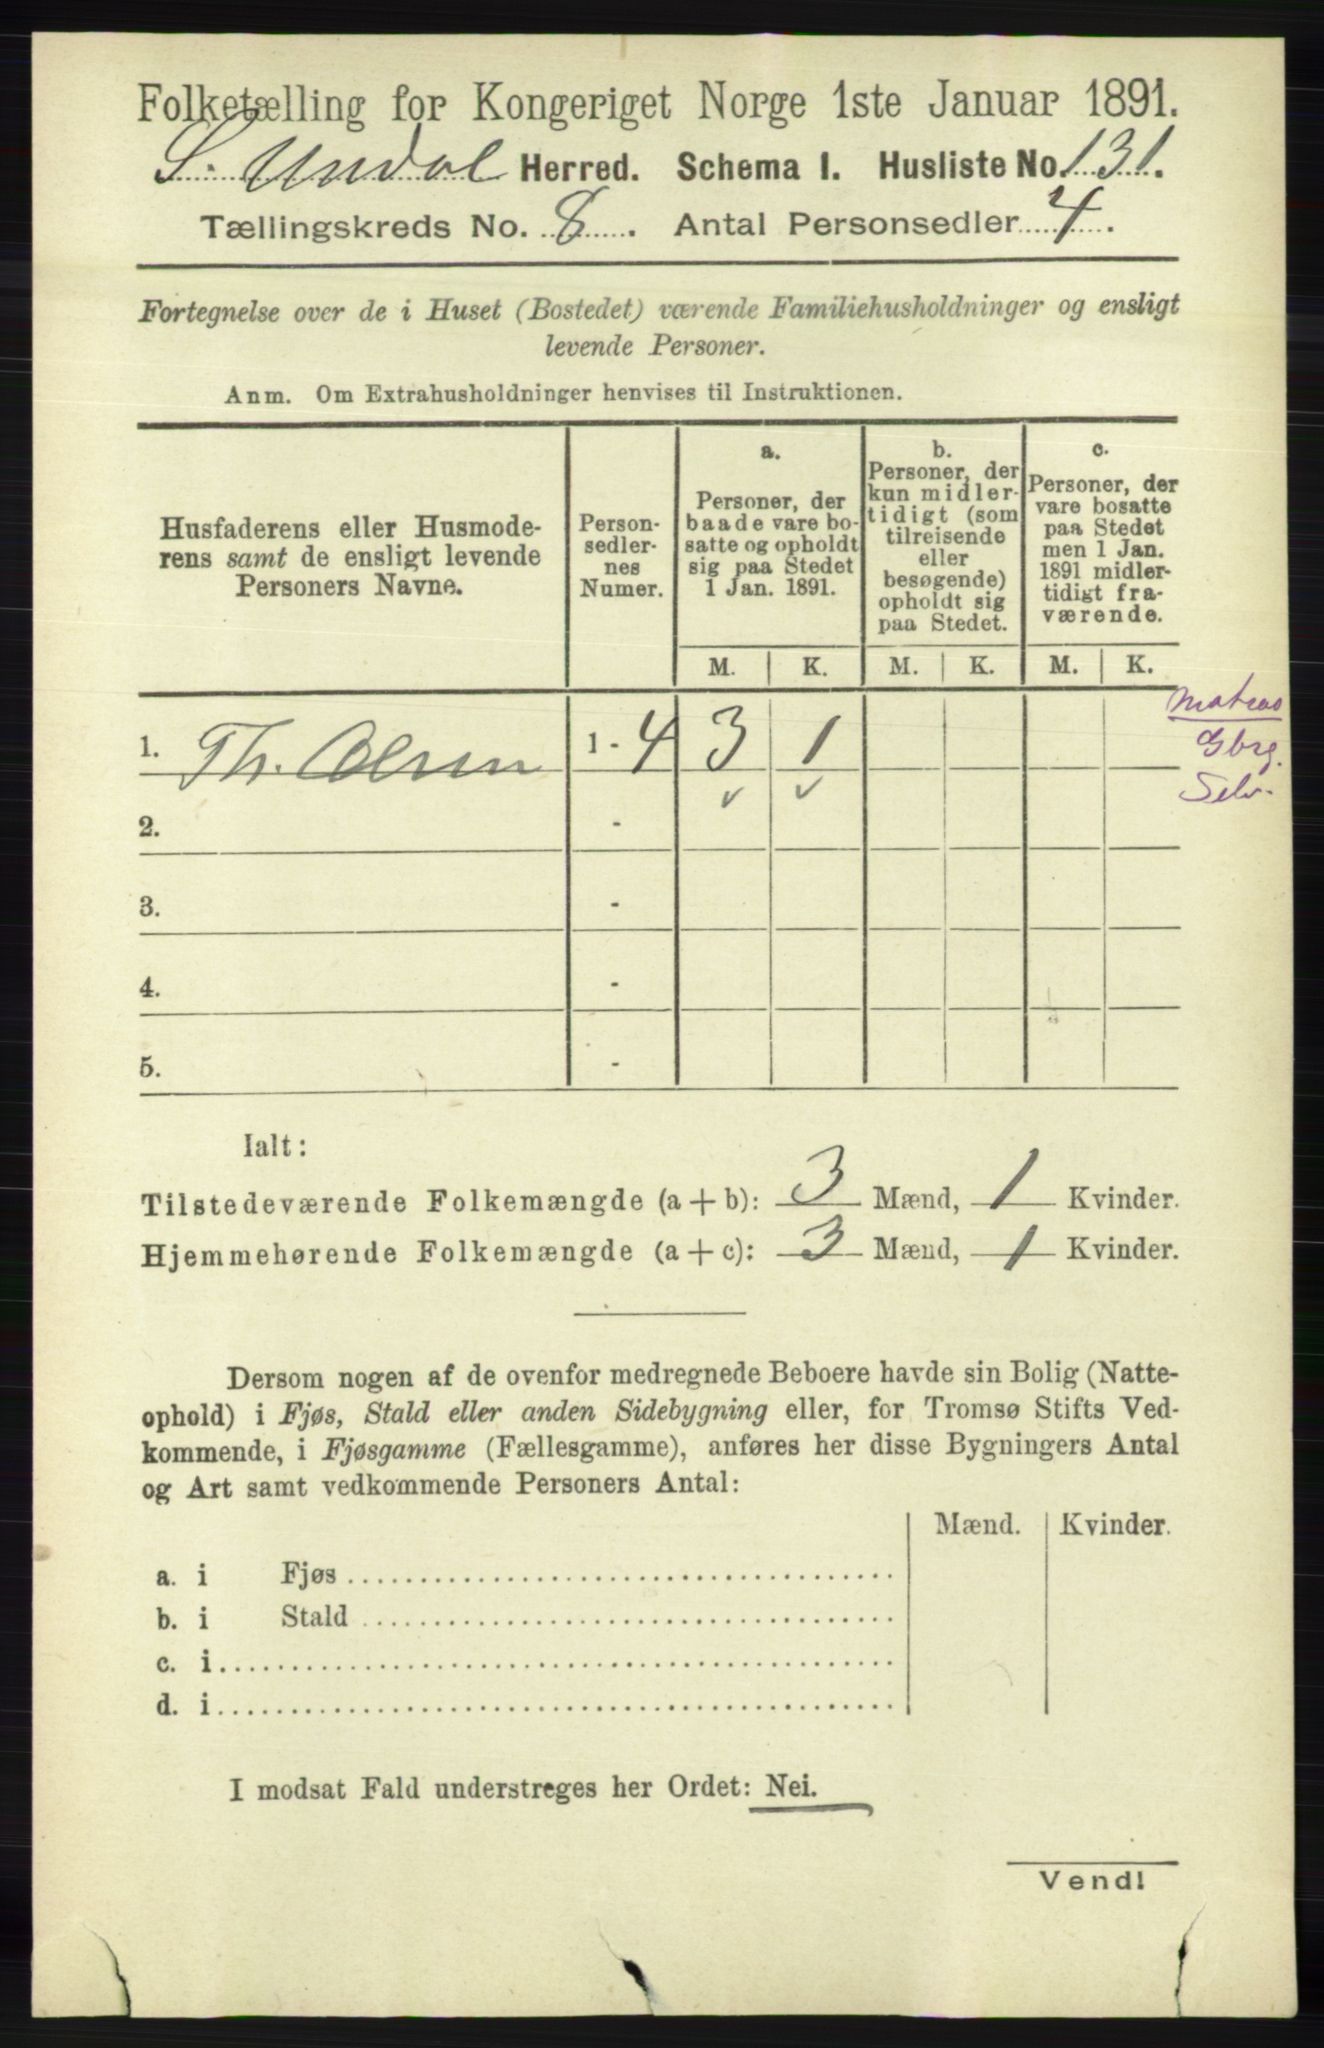 Folketælling for Kongeriget Norge 1ste Januar 1891.
S. Undal Herred. Schema I. Husliste No. 131.
Tællingskreds No. 8. Antal Personsedler 4.
Fortegnelse over de i Huset (Bostedet) værende Familiehusholdninger og ensligt
levende Personer.
Anm. Om Extrahusholdninger henvises til Instruktionen.
Husfaderens eller Husmode-
rens samt de ensligt levende
Personers Navne.
Person-
sedler-
nes
Numer.
a.
Personer, der
baade vare bo-
satte og opholdt
sig paa Stedet
1 Jan. 1891.
b.
Personer, der
kun midler-
tidigt (som
tilreisende
eller
besøgende)
opholdt sig
paa Stedet.
c.
Personer, der
vare bosatte
paa Stedet
men 1 Jan.
1891 midler-
tidigt fra-
værende.
M. K. M. K. M. K.
1. Th. Olsen 1 - 4 3 1
Gbrg.
Selv.
2. -
3. -
4. -
5. -
Ialt:
Tilstedeværende Folkemængde (a + b): 3 Mænd, 1 Kvinder.
Hjemmehørende Folkemængde (a + c): 3 Mænd, 1 Kvinder.
Dersom nogen af de ovenfor medregnede Beboere havde sin Bolig (Natte-
ophold) i Fjøs, Stald eller anden Sidebygning eller, for Tromsø Stifts Ved-
kommende, i Fjøsgamme (Fællesgamme), anføres her disse Bygningers Antal
og Art samt vedkommende Personers Antal:
Mænd. Kvinder.
a. i Fjøs
b. i Stald
c. i
d. i
I modsat Fald understreges her Ordet: Nei.
Vend!